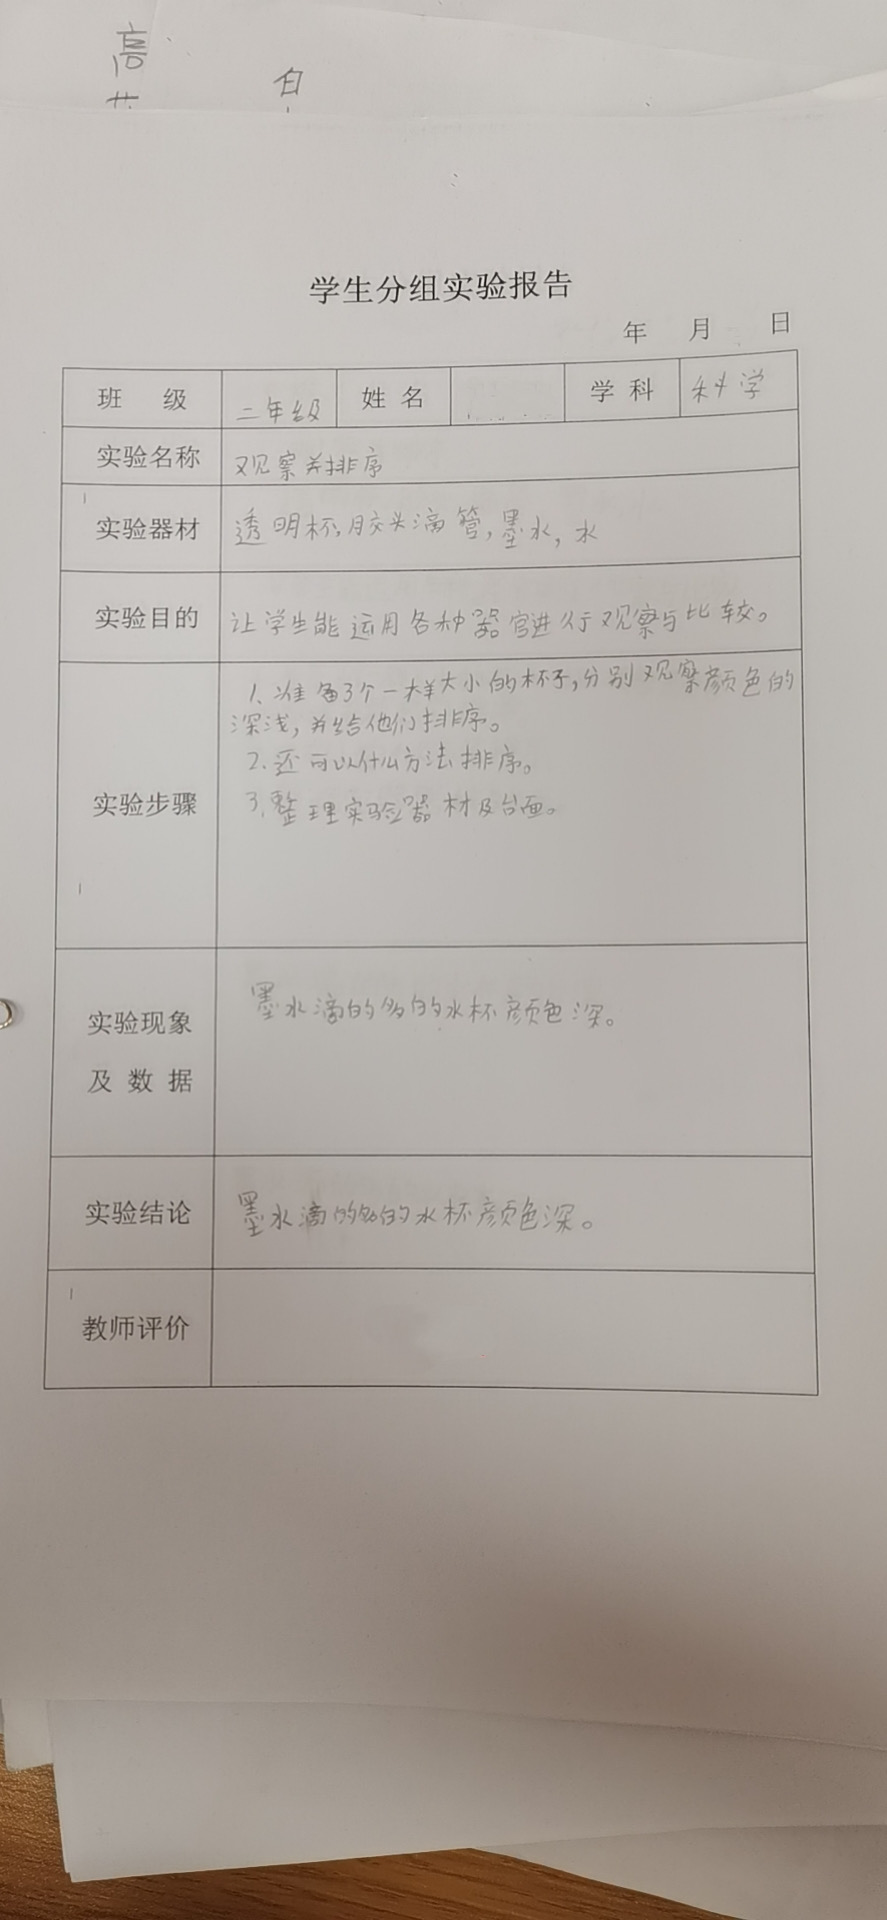 高 白
学生分组实验报告
年 月 日
班 级 二年级 姓 名 学 科 科学
实验名称 观察并排序
实验器材 透明杯,胶头滴管,墨水,水
实验目的 让学生能运用各种器官进行观察与比较。
实验步骤
1.准备3个一样大小的杯子,分别观察颜色的
深浅,并给他们排序。
2.还可以什么方法排序。
3.整理实验器材及台面。
实验现象
及 数 据
墨水滴的多的水杯颜色深。
实验结论 墨水滴的多的水杯颜色深。
教师评价